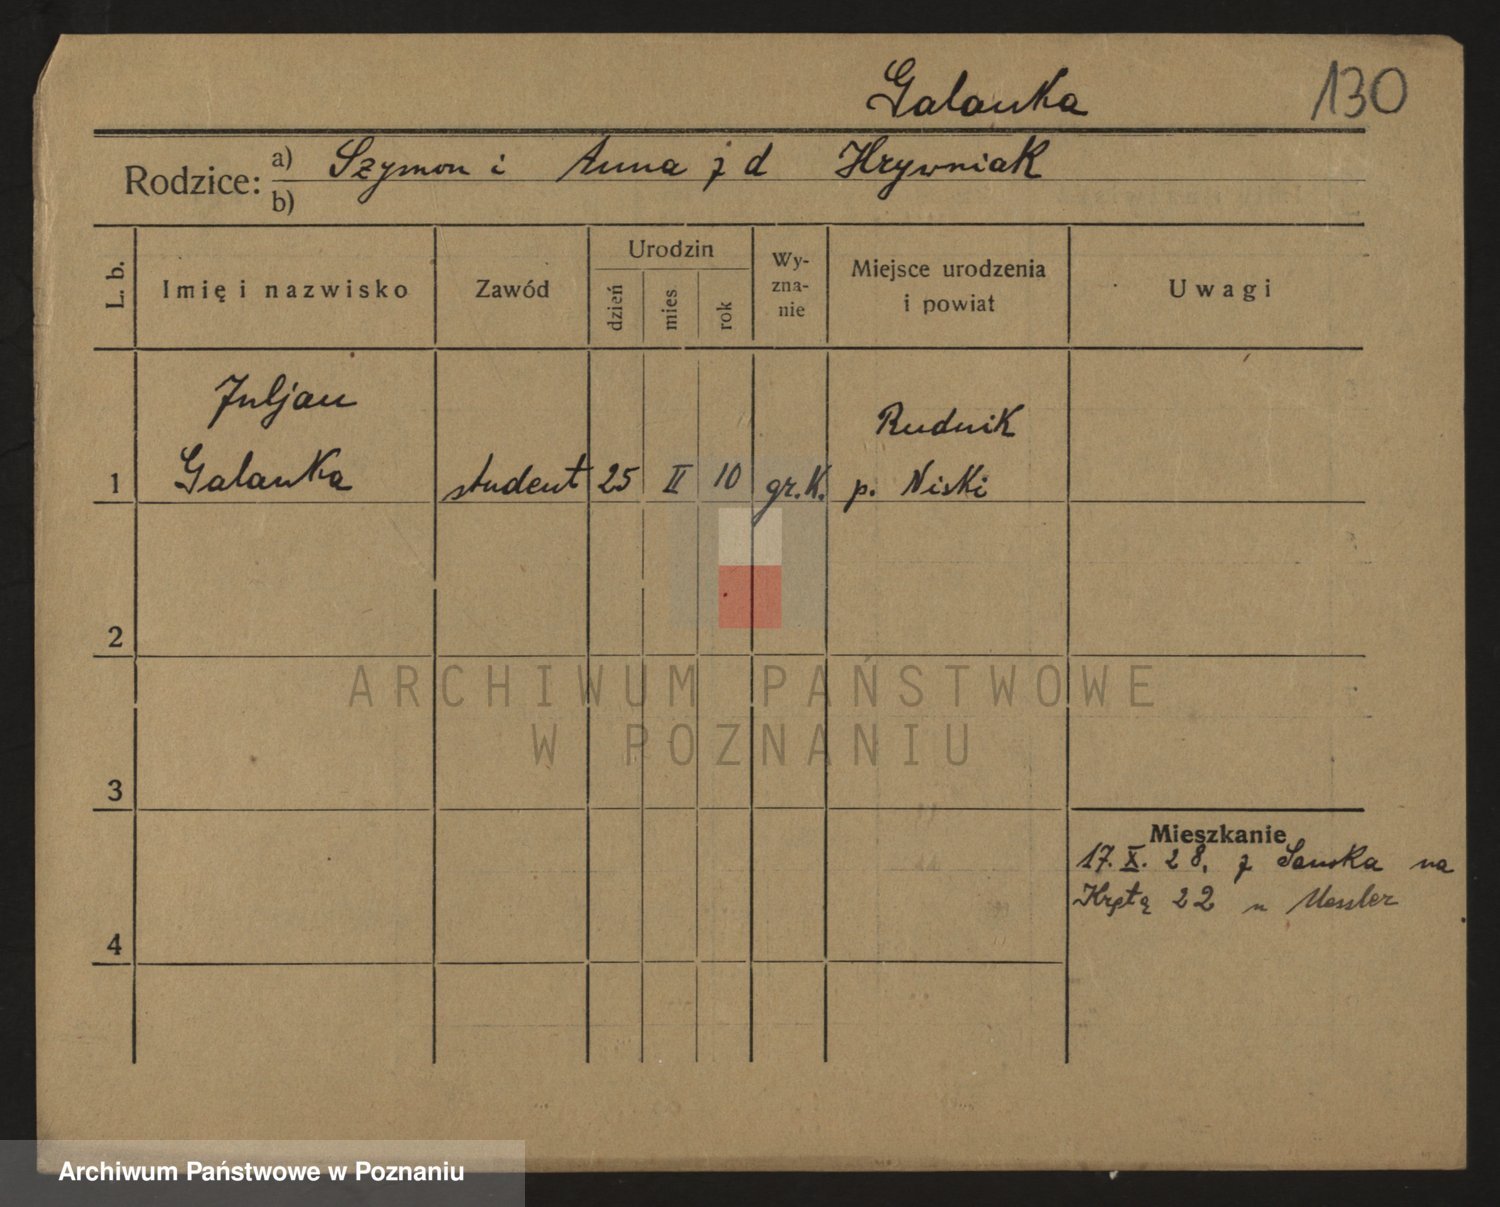 Galanka
130
Rodzice: a) Szymon i Anna z d Hrywniak
b)
L. b.
Imię i nazwisko
Zawód
Urodzin
dzień
mies
rok
Wy-
zna-
nie
Miejsce urodzenia
i powiat
Uwagi
Juljan
Rudnik
1 Galanka student 25 II 10 gr.K. p. Niski
2
ARCHIWUM PAŃSTWOWE
W POZNANIU
3
Mieszkanie
17. X. 28. z Sanoka na
Krętą 22 u Messler
4
Archiwum Państwowe w Poznaniu